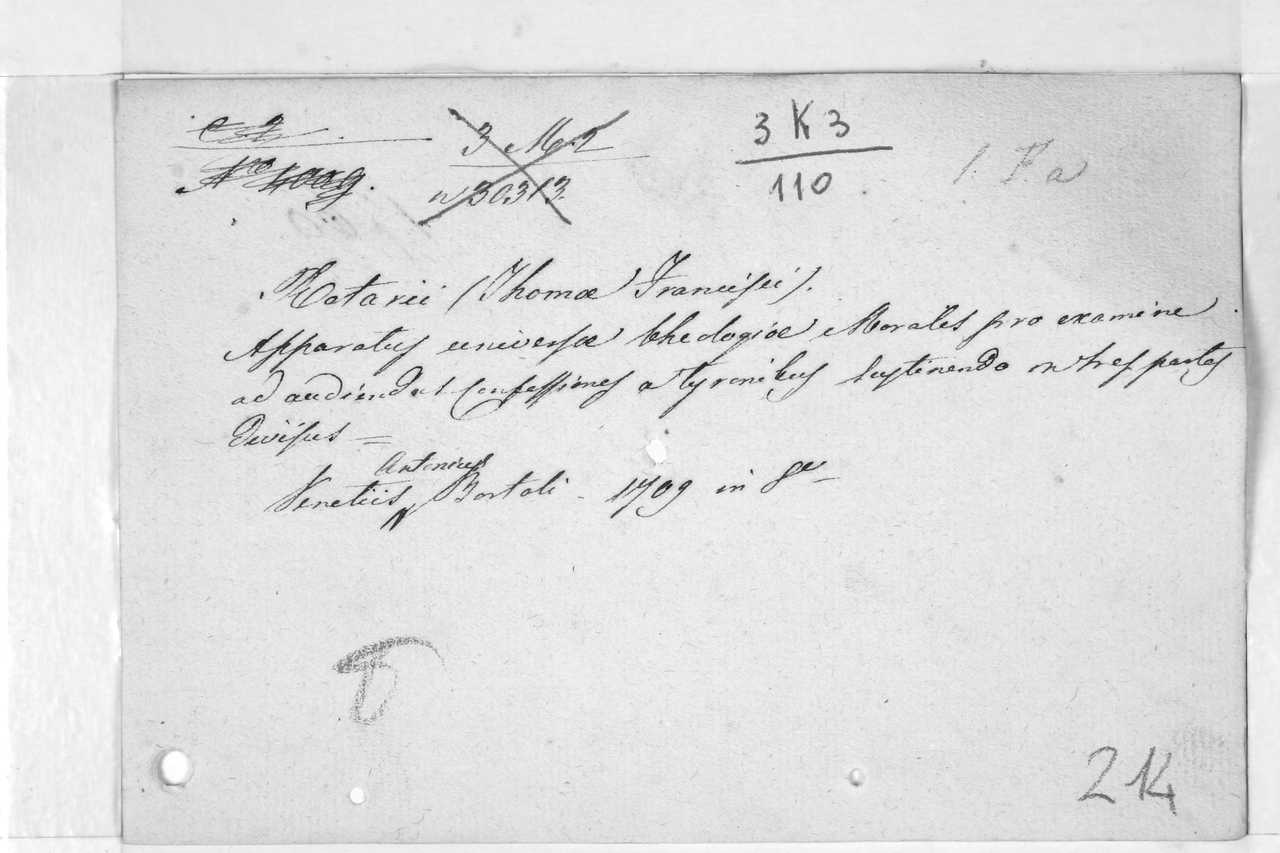 3 M. 2
n 30313.
3 K 3
110
1. F a
Rotarii (Thomæ Francisci).
Apparatus universæ theologiæ Morales pro examine
ad audiendas Confessiones a tyronibus sustinendo in tres partes
divisus =
Antonius
Venetiis Bortoli - 1709 in 8º
214